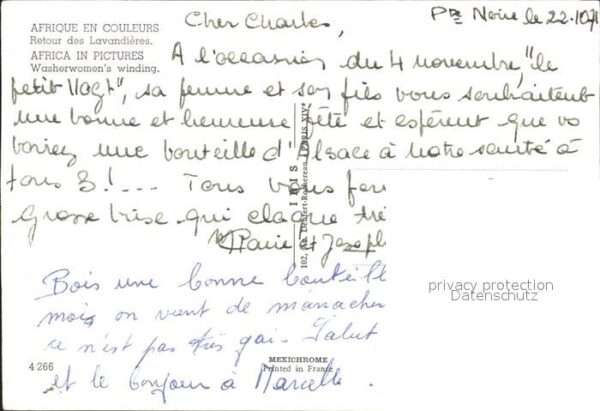 AFRIQUE EN COULEURS
Retour des Lavandières.
AFRICA IN PICTURES
Washerwomen's winding.
Pte Noire le 22.10.71
Cher Charles,
A l'occasion du 4 novembre, "le
petit Vogt", sa femme et son fils vous souhaitent
une bonne et heureuse fête et espèrent que vo
boviez une bouteille d'Alsace à notre santé à
tous 3!... Tous vous fon
grosse bise qui claque trè
Marie et Joseph
Bois une bonne bouteill
mois on vient de m'arracher
ce n'est pas très gai. Salut
et le bonjour à Marcelle.
IRIS
102, Av. Denfert-Rochereau (PARIS XIV°)
MEXICHROME
Printed in France
4 266
privacy protection
Datenschutz